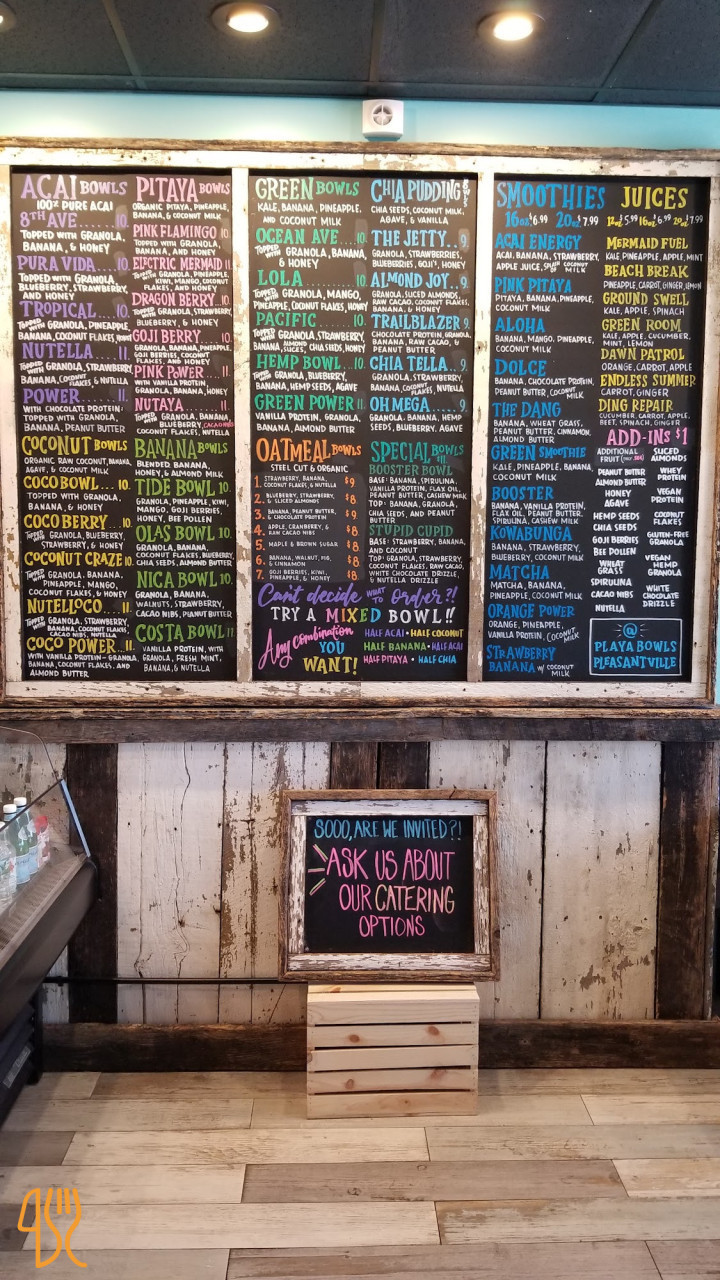 ACAI BOWLS
100% PURE ACAI
8TH AVE....10
TOPPED WITH GRANOLA,
BANANA, & HONEY
PURA VIDA...10
TOPPED WITH GRANOLA,
BLUEBERRY, STRAWBERRY,
AND HONEY
TROPICAL...10
TOPPED WITH GRANOLA, PINEAPPLE,
BANANA, COCONUT FLAKES, HONEY
NUTELLA....11
TOPPED WITH GRANOLA, STRAWBERRY,
BANANA, COCONUT FLAKES & NUTELLA
POWER....11
WITH CHOCOLATE PROTEIN-
TOPPED WITH GRANOLA,
BANANA, PEANUT BUTTER
COCONUT BOWLS
ORGANIC RAW COCONUT, BANANA,
AGAVE, & COCONUT MILK
COCO BOWL...10
TOPPED WITH GRANOLA,
BANANA, & HONEY
COCO BERRY...10
TOPPED WITH GRANOLA, BLUEBERRY,
STRAWBERRY, & HONEY
COCONUT CRAZE 10
TOPPED WITH GRANOLA, BANANA,
PINEAPPLE, MANGO,
COCONUT FLAKES, & HONEY
NUTELLOCO...11
TOPPED WITH GRANOLA, STRAWBERRY,
BANANA, COCONUT FLAKES,
CACAO NIBS, NUTELLA
COCO POWER...11
WITH VANILLA PROTEIN- GRANOLA,
BANANA, COCONUT FLAKES, AND
ALMOND BUTTER
PITAYA BOWLS
ORGANIC PITAYA, PINEAPPLE,
BANANA, & COCONUT MILK
PINK FLAMINGO 10
TOPPED WITH GRANOLA,
BANANA, AND HONEY
ELECTRIC MERMAID 11
TOPPED WITH GRANOLA, PINEAPPLE,
KIWI, MANGO, COCONUT
FLAKES, AND HONEY
DRAGON BERRY...10
TOPPED WITH GRANOLA, STRAWBERRY,
BLUEBERRY, & HONEY
GOJI BERRY 10
GRANOLA, BANANA, PINEAPPLE,
GOJI BERRIES, COCONUT
FLAKES, AND HONEY
PINK POWER...11
WITH VANILLA PROTEIN,
GRANOLA, BANANA, HONEY
NUTAYA 11
TOPPED WITH GRANOLA, BANANA,
BLUEBERRY, CACAO NIBS
COCONUT FLAKES, NUTELLA
BANANA BOWLS
BLENDED BANANA,
HONEY, & ALMOND MILK
TIDE BOWL 10
GRANOLA, PINEAPPLE, KIWI,
MANGO, GOJI BERRIES,
HONEY, BEE POLLEN
OLAS BOWL 10
GRANOLA, BANANA,
COCONUT FLAKES, BLUEBERRY,
CHIA SEEDS, ALMOND BUTTER
NICA BOWL 10
GRANOLA, BANANA,
WALNUTS, STRAWBERRY,
CACAO NIBS, PEANUT BUTTER
COSTA BOWL 11
VANILLA PROTEIN, WITH
GRANOLA, FRESH MINT,
BANANA, & NUTELLA
GREEN BOWLS
KALE, BANANA, PINEAPPLE,
AND COCONUT MILK
OCEAN AVE....10
TOPPED WITH GRANOLA, BANANA,
& HONEY
LOLA....10
TOPPED WITH GRANOLA, MANGO,
PINEAPPLE, COCONUT FLAKES, HONEY
PACIFIC....10
TOPPED WITH GRANOLA, STRAWBERRY,
BANANA, ALMOND SLICES, CHIA SEEDS, HONEY
HEMP BOWL...10
TOPPED WITH GRANOLA, BLUEBERRY,
BANANA, HEMP SEEDS, AGAVE
GREEN POWER 11
VANILLA PROTEIN, GRANOLA,
BANANA, ALMOND BUTTER
OATMEAL BOWLS
STEEL CUT & ORGANIC
1. STRAWBERRY, BANANA, COCONUT FLAKES, & NUTELLA $9
2. BLUEBERRY, STRAWBERRY, & SLICED ALMONDS $8
3. BANANA, PEANUT BUTTER, & CHOCOLATE PROTEIN $9
4. APPLE, CRANBERRY, & RAW CACAO NIBS $8
5. MAPLE & BROWN SUGAR $8
6. BANANA, WALNUT, FIG, & CINNAMON $8
7. GOJI BERRIES, KIWI, PINEAPPLE, & HONEY $8
CHIA PUDDING BOWLS
CHIA SEEDS, COCONUT MILK,
AGAVE, & VANILLA
THE JETTY..9.
GRANOLA, STRAWBERRIES,
BLUEBERRIES, GOJI'S, HONEY
ALMOND JOY..9.
GRANOLA, SLICED ALMONDS,
RAW CACAO, COCONUT FLAKES,
BANANA, & HONEY
TRAILBLAZER 9.
CHOCOLATE PROTEIN, GRANOLA,
BANANA, RAW CACAO, &
PEANUT BUTTER
CHIA TELLA..9.
GRANOLA, STRAWBERRY,
BANANA, COCONUT FLAKES, & NUTELLA
OH MEGA.....9.
GRANOLA, BANANA, HEMP
SEEDS, BLUEBERRY, AGAVE
SPECIAL BOWLS $11
BOOSTER BOWL
BASE- BANANA, SPIRULINA,
VANILLA PROTEIN, FLAX OIL,
PEANUT BUTTER, CASHEW MILK
TOP- BANANA, GRANOLA,
CHIA SEEDS, AND PEANUT
BUTTER
STUPID CUPID
BASE- STRAWBERRY, BANANA,
AND COCONUT
TOP- GRANOLA, STRAWBERRY,
COCONUT FLAKES, RAW CACAO,
WHITE CHOCOLATE DRIZZLE,
& NUTELLA DRIZZLE
Can't decide WHAT TO order?!
TRY A MIXED BOWL!!
Any combination YOU WANT!
HALF ACAI • HALF COCONUT
HALF BANANA • HALF ACAI
HALF PITAYA • HALF CHIA
SMOOTHIES
16oz. $6.99 20oz. $7.99
ACAI ENERGY
ACAI, BANANA, STRAWBERRY,
APPLE JUICE, COCONUT MILK
PINK PITAYA
PITAYA, BANANA, PINEAPPLE,
COCONUT MILK
ALOHA
BANANA, MANGO, PINEAPPLE,
COCONUT MILK
DOLCE
BANANA, CHOCOLATE PROTEIN,
PEANUT BUTTER, COCONUT MILK
THE DANG
BANANA, WHEAT GRASS,
PEANUT BUTTER, CINNAMON,
ALMOND BUTTER
GREEN SMOOTHIE
KALE, PINEAPPLE, BANANA,
COCONUT MILK
BOOSTER
BANANA, VANILLA PROTEIN,
FLAX OIL, PEANUT BUTTER,
SPIRULINA, CASHEW MILK
KOWABUNGA
BANANA, STRAWBERRY,
BLUEBERRY, COCONUT MILK
MATCHA
MATCHA, BANANA,
PINEAPPLE, COCONUT MILK
ORANGE POWER
ORANGE, PINEAPPLE,
VANILLA PROTEIN, COCONUT MILK
STRAWBERRY
BANANA W/ COCONUT MILK
JUICES
12oz $5.99 16oz $6.99 20oz $7.99
MERMAID FUEL
KALE, PINEAPPLE, APPLE, MINT
BEACH BREAK
PINEAPPLE, CARROT, GINGER, LEMON
GROUND SWELL
KALE, APPLE, SPINACH
GREEN ROOM
KALE, APPLE, CUCUMBER,
MINT, LEMON
DAWN PATROL
ORANGE, CARROT, APPLE
ENDLESS SUMMER
CARROT, GINGER
DING REPAIR
CUCUMBER, CARROT, APPLE,
BEET, SPINACH, GINGER
ADD-INS $1
ADDITIONAL FRUIT
PEANUT BUTTER
ALMOND BUTTER
HONEY
AGAVE
HEMP SEEDS
CHIA SEEDS
GOJI BERRIES
BEE POLLEN
WHEAT GRASS
SPIRULINA
CACAO NIBS
NUTELLA
SLICED ALMONDS
WHEY PROTEIN
VEGAN PROTEIN
COCONUT FLAKES
GLUTEN-FREE GRANOLA
VEGAN HEMP GRANOLA
WHITE CHOCOLATE DRIZZLE
@
PLAYA BOWLS
PLEASANTVILLE
SOOO, ARE WE INVITED?!
ASK US ABOUT
OUR CATERING
OPTIONS